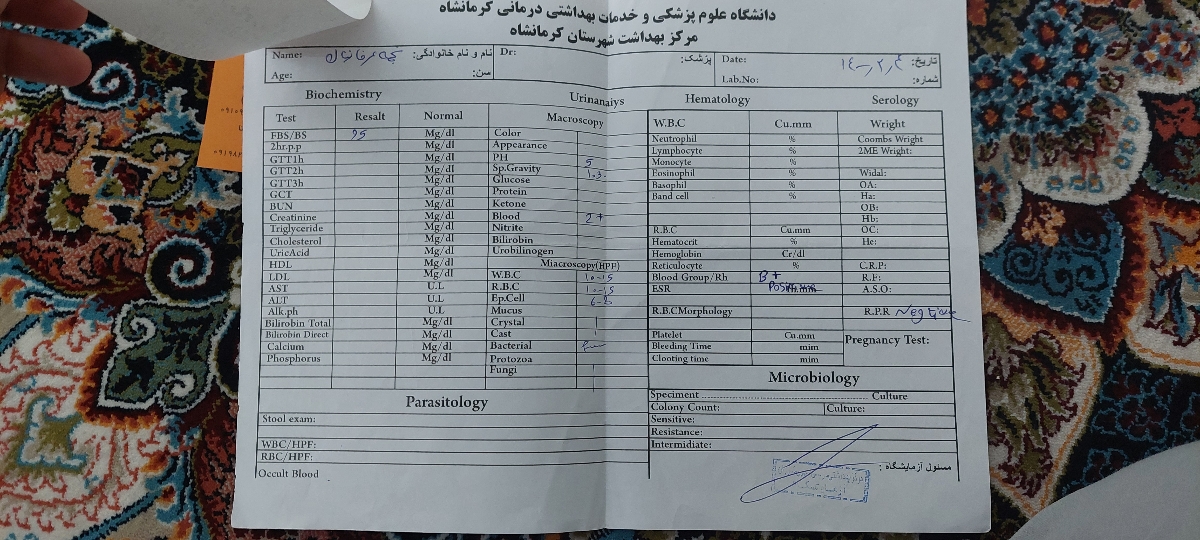 دانشگاه علوم پزشکی و خدمات بهداشتی درمانی کرمانشاه
مرکز بهداشت شهرستان کرمانشاه
Name: نام و نام خانوادگی: Dr: پزشک: Date: تاریخ:
Age: سن: Lab.No: شماره:
Biochemistry Urinanaiys Hematology Serology
Test Resalt Normal Macroscopy W.B.C Cu.mm Wright
FBS/BS 95 Mg/dl Color Neutrophil % Coombs Wright
2hr.p.p Mg/dl Appearance Lymphocyte % 2ME Wright:
GTT1h Mg/dl PH 5 Monocyte %
GTT2h Mg/dl Sp.Gravity Eosinophil % Widal:
GTT3h Mg/dl Glucose Basophil % OA:
GCT Mg/dl Protein Band cell % Ha:
BUN Mg/dl Ketone OB:
Creatinine Mg/dl Blood 2+ Hb:
Triglyceride Mg/dl Nitrite R.B.C Cu.mm OC:
Cholesterol Mg/dl Bilirobin Hematocrit % He:
UricAcid Mg/dl Urobilinogen Hemoglobin Cr/dl
HDL Mg/dl Miacroscopy(HPF) Reticulocyte % C.R.P:
LDL Mg/dl W.B.C 10-15 Blood Group/Rh B+ R.P:
AST U.L R.B.C 10-15 ESR A.S.O:
ALT U.L Ep.Cell
Alk.ph U.L Mucus R.B.CMorphology R.P.R Negative
Bilirobin Total Mg/dl Crystal
Bilirobin Direct Mg/dl Cast Platelet Cu.mm
Calcium Mg/dl Bacterial Bleeding Time mim Pregnancy Test:
Phosphorus Mg/dl Protozoa Clooting time mim
Fungi
Microbiology
Parasitology
Speciment Culture
Colony Count: Culture:
Stool exam: Sensitive:
Resistance:
WBC/HPF: Intermidiate:
RBC/HPF:
مسئول آزمایشگاه :
Occult Blood